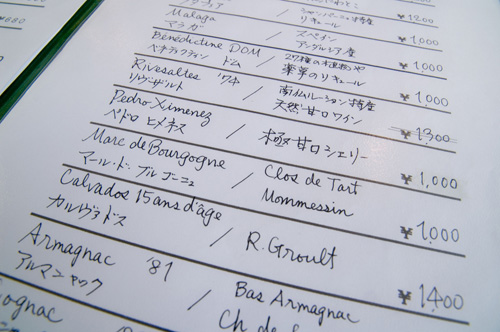 シャンパーニュ特産
リキュール
¥1200
Malaga / スペイン ¥1,000
マラガ アンダルシア産
Bénédictine DOM /
ベネディクティン ドム 薬草のリキュール ¥1,000
Rivesaltes '74 / 南仏ルーション特産 ¥1,000
リヴザルト 天然甘口ワイン
Pedro Ximenez / 極甘口シェリー ¥1300
ペドロ ヒメネス
Marc de Bourgogne / Clos de Tart ¥1,000
マール・ド・ブルゴーニュ Mommessin
Calvados 15 ans d'âge / R. Groult ¥1,000
カルヴァドス
Armagnac '81 / Bas Armagnac ¥1400
アルマニャック Ch de